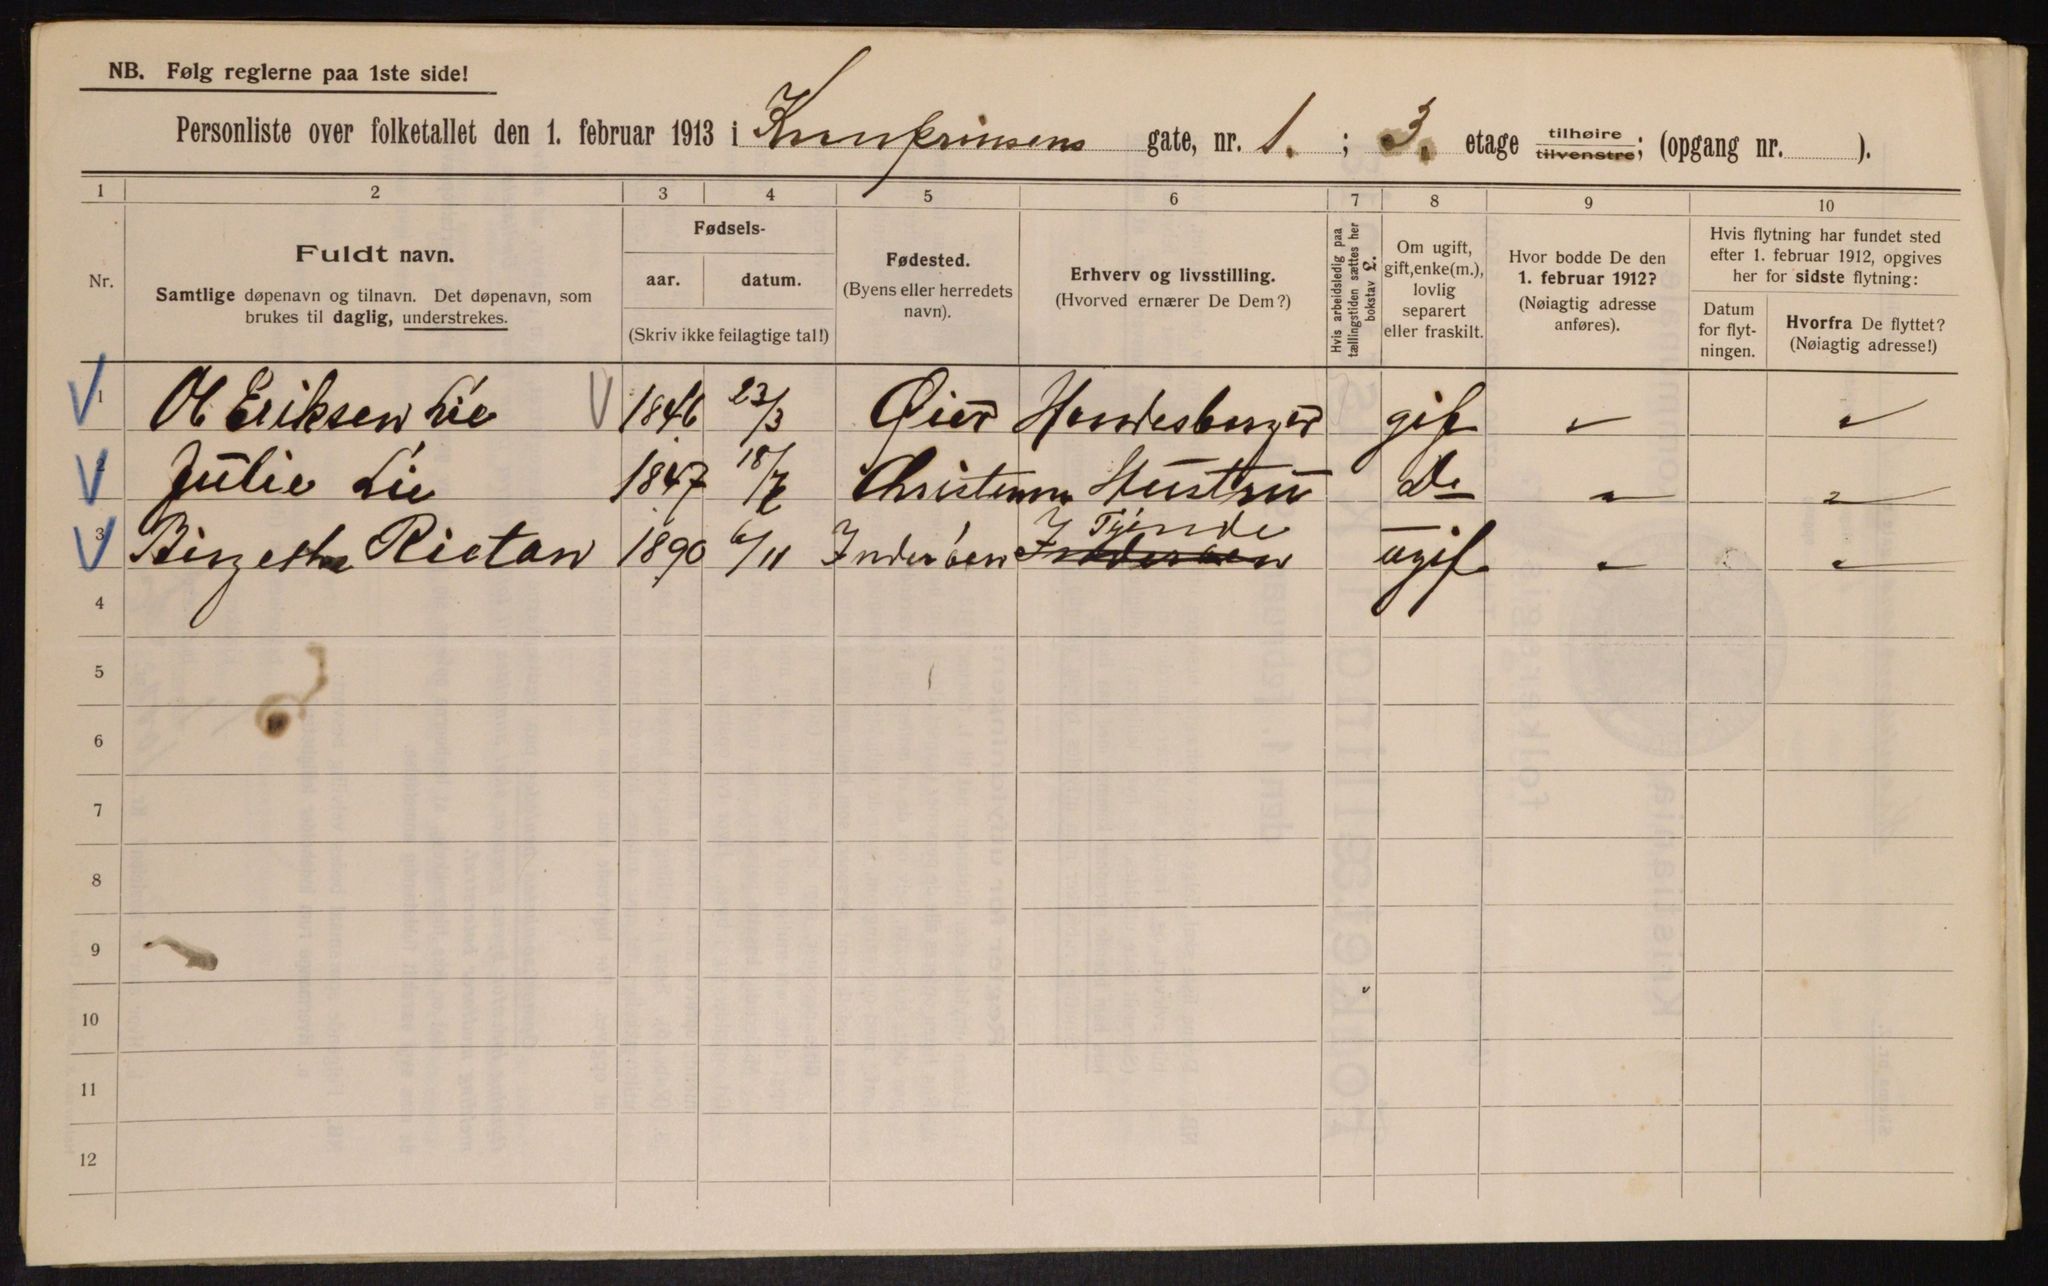 NB. Følg reglerne paa 1ste side!
Personliste over folketallet den 1. februar 1913 i Kronprinsens gate, nr. 1. ; 3. etage tilhøire tilvenstre; (opgang nr. ).
1 2 3 4 5 6 7 8 9 10
Nr.
Fuldt navn.
Samtlige døpenavn og tilnavn. Det døpenavn, som
brukes til daglig, understrekes.
Fødsels-
aar. datum.
(Skriv ikke feilagtige tal!)
Fødested.
(Byens eller herredets
navn).
Erhverv og livsstilling.
(Hvorved ernærer De Dem?)
Hvis arbeidsledig paa
tællingstiden sættes her
bokstav L.
Om ugift,
gift, enke(m.),
lovlig
separert
eller fraskilt.
Hvor bodde De den
1. februar 1912?
(Nøiagtig adresse
anføres).
Hvis flytning har fundet sted
efter 1. februar 1912, opgives
her for sidste flytning:
Datum
for flyt-
ningen.
Hvorfra De flyttet?
(Nøiagtig adresse!)
1 Ol Eriksen Lie 1846 23/3 Øier gif "  "
2 Julie Lie 1847 18/7 Hustru Do " "
3 Rietan 1890 6/11 Inderøen Tjende ugif " "
4
5
6
7
8
9
10
11
12